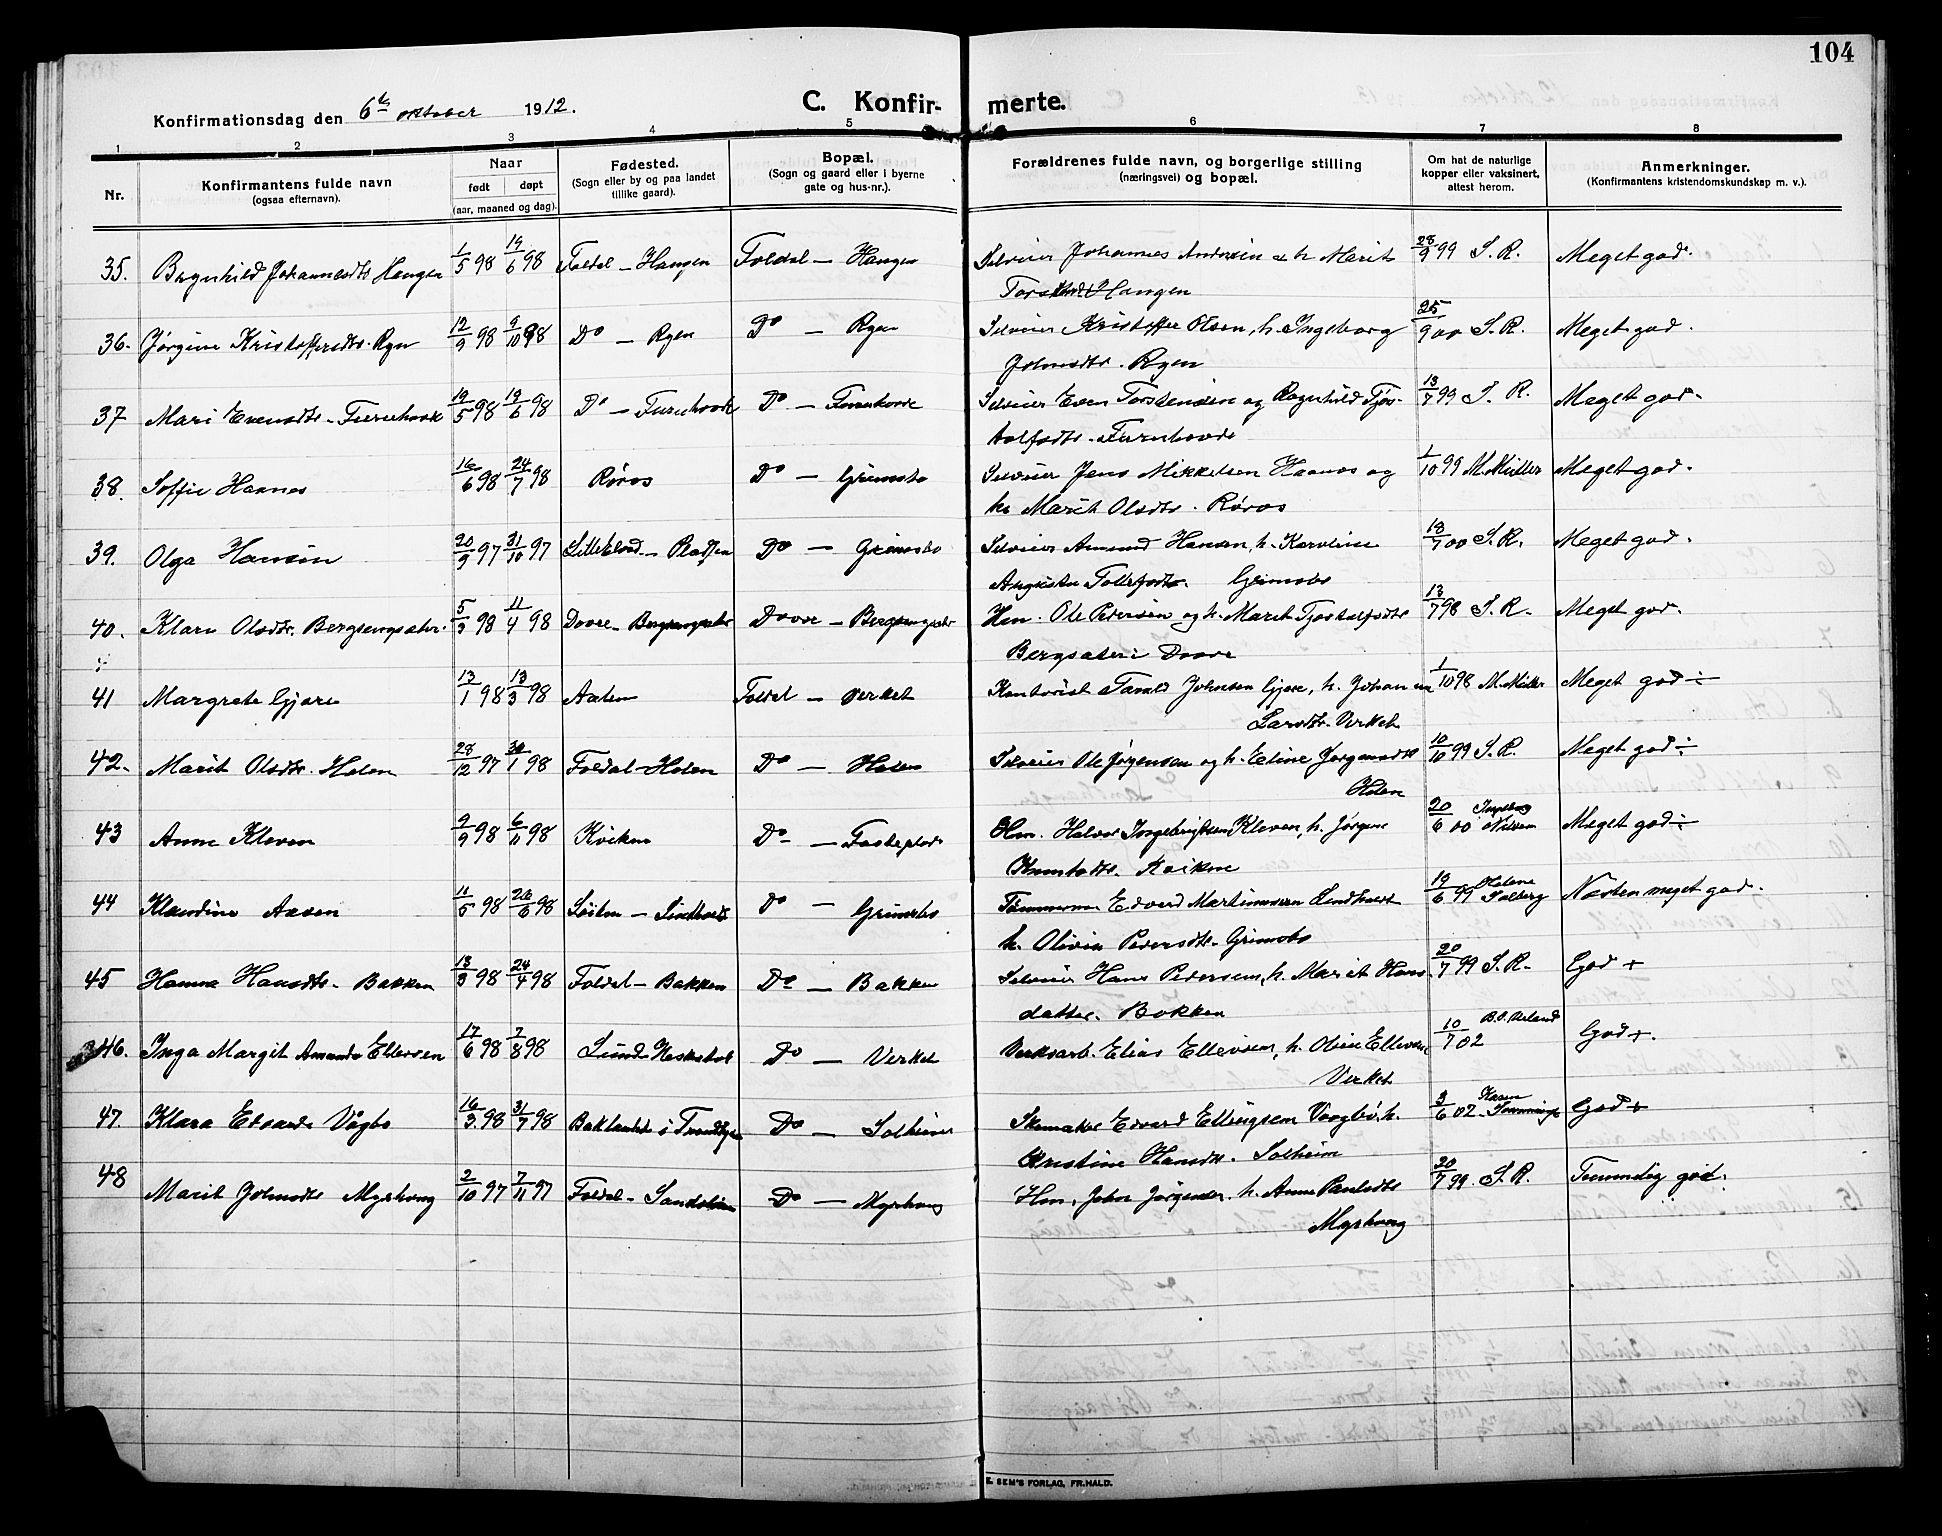 104
Konfirmationsdag den 6te oktober 1912.
C. Konfir- merte.
1 2 3 4 5 6 7 8
Nr.
Konfirmantens fulde navn
(ogsaa efternavn).
Naar
født døpt
(aar, maaned og dag).
Fødested.
(Sogn eller by og paa landet
tillike gaard).
Bopæl.
(Sogn og gaard eller i byerne
gate og hus-nr.).
Forældrenes fulde navn, og borgerlige stilling
(næringsvei) og bopæl.
Om hat de naturlige
kopper eller vaksinert,
attest herom.
Anmerkninger.
(Konfirmantens kristendomskundskap m. v.).
35. Ragnhild Johannesdtr Haugen 1/5 98 19/6 98 Foldal — Haugen Foldal — Haugen Selveier Johannes Andersen & h. Marit 28/9 99 S. R. Meget god.
Haugen
36. Jørgine Kristoffersdtr. Ryen 12/9 98 9/10 98 Do — Ryen Do — Ryen Selveier Kristoffer Olsen, h. Ingeborg 25/9 00 S. R. Meget god.
Johnsdtr. Ryen
37 Mari Evensdtr. Furuhovde 19/5 98 19/6 98 Do — Furuhovde Do — Furuhovde Selveier Even Torstensen og Ragnhild Tjos- 13/7 99 S. R. Meget god.
tolfsdtr. Furuhovde
38. Soffie Haanes 16/6 98 24/7 98 Røros Do — Grimsbo Selveier Jens Mikkelsen Haanes og 1/10 99 M. Müller Meget god.
h. Marit Olsdtr. Røros
39. Olga Hansen 20/9 97 31/10 97 Lilleelvd. — Pladsen Do — Grimsbo Selveier Amund Hansen, h. Karoline 18/7 00 S. R. Meget god.
Augusta Tollefsdtr. Grimsbo
40. Klara Olsdtr. Bergsengsæter 5/3 98 11/4 98 Dovre — Bergsengsæter Dovre — Bergsengsæter Hm. Ole Pedersen og h. Marit Tjostolfsdtr 13/7 98 S. R. Meget god.
Bergsæter i Dovre
41 Margrete Gjøre 13/1 98 13/3 98 Aalen Foldal — Verket Kontorist Johnsen Gjøre, h. Johanna 1/10 98 M. Müller Meget god ÷
Larsdtr. Verket
42. Marit Olsdtr. Holen 28/12 97 30/1 98 Foldal — Holen Do — Holen Selveier Ole Jørgensen og h. Eline Jørgensdtr 10/10 99 S. R. Meget god ÷
Holen
43 Anne Kleven 9/9 98 6/11 98 Kvikne Do — Hm. Halvor Ingebrigtsen Kleven, h. Jørgine 20/6 00 Ingeborg Nilsen Meget god ÷
Knutsdtr. Kvikne
44 Klaudine Aasen 11/5 98 26/6 98 Do — Grimsbo Tømmerm. Edvard Martinussen Lindhaus 19/6 99 Helene Solberg Næsten meget god.
h. Olivia Pedersdtr. Grimsbo
45 Hanna Hansdtr. Bakken 13/3 98 24/4 98 Foldal — Bakken Do — Bakken Selveier Hans Pedersen, h. Marit Hans- 20/7 99 S. R. God +
datter. Bakken
46. Inga Margit Amanda Ellevsen 17/6 98 7/8 98 Lund Do — Verket Verksarb. Elias Ellevsen, h. Oline Ellevsen 10/7 02 God +.
Verket
47. Klara Edvarda Vågbø 16/3 98 31/7 98 Baklandet i Trondhjem Do — Solheim Skomaker Edvard Ellingsen Vaagbø, h. 3/6 02 Karen God +
Kristine Hansdtr. Solheim
48 Marit Johnsdtr Myrhaug 2/10 97 7/11 97 Foldal — Do — Myrhaug Hm. John Jørgensen h. Anne Paulsdtr 20/7 99. S. R. Temmelig god.
Myrhaug
E. SEM'S FORLAG, FR.HALD.